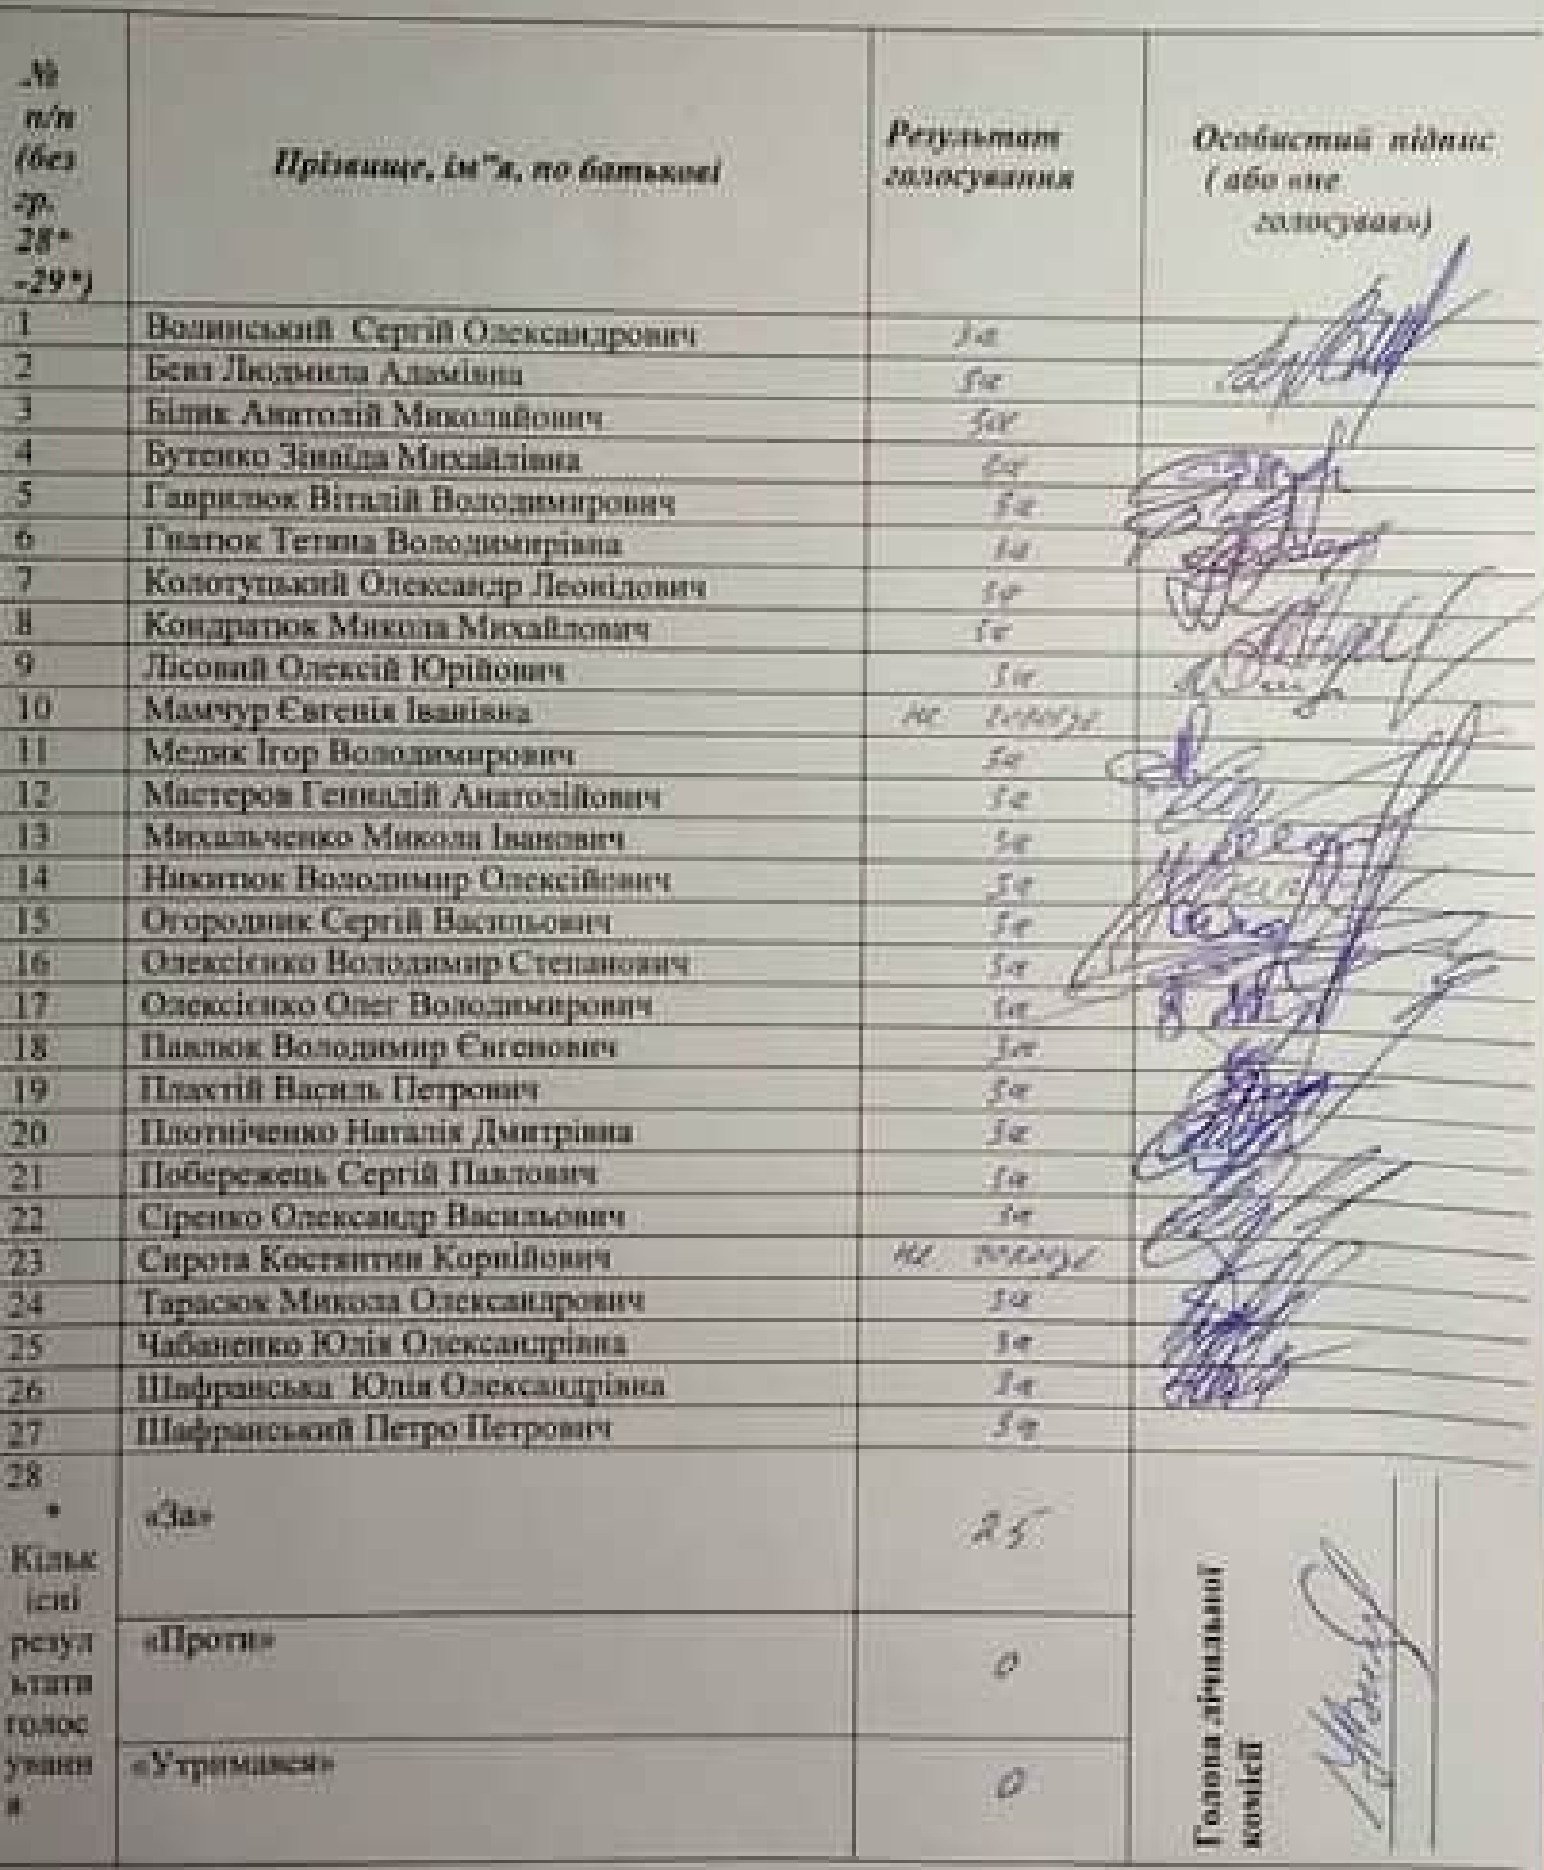 №
п/п
(без
гр.
28*
-29*)
Прізвище, ім"я, по батькові
Результат
голосування
Особистий підпис
( або «не
голосував»)
1 Волинський Сергій Олександрович за
2 Бевз Людмила Адамівна за
3 Білик Анатолій Миколайович за
4 Бутенко Зінаїда Михайлівна за
5 Гаврилюк Віталій Володимирович за
6 Гнатюк Тетяна Володимирівна за
7 Колотуцький Олександр Леонідович за
8 Кондратюк Микола Михайлович за
9 Лісовий Олексій Юрійович за
10 Мамчур Євгенія Іванівна не голосує
11 Медик Ігор Володимирович за
12 Мастеров Геннадій Анатолійович за
13 Михальченко Микола Іванович за
14 Никитюк Володимир Олексійович за
15 Огородник Сергій Васильович за
16 Олексієнко Володимир Степанович за
17 Олексієнко Олег Володимирович за
18 Павлюк Володимир Євгенович за
19 Плахтій Василь Петрович за
20 Плотніченко Наталія Дмитрівна за
21 Побережець Сергій Павлович за
22 Сіренко Олександр Васильович за
23 Сирота Костянтин Корнійович не голосує
24 Тарасюк Микола Олександрович за
25 Чабаненко Юлія Олександрівна за
26 Шафранська Юлія Олександрівна за
27 Шафранський Петро Петрович за
28
*
Кільк
існі
резул
ьтати
голос
уванн
я
«За» 25
«Проти» 0
«Утримався» 0
Голова лічильної
комісії